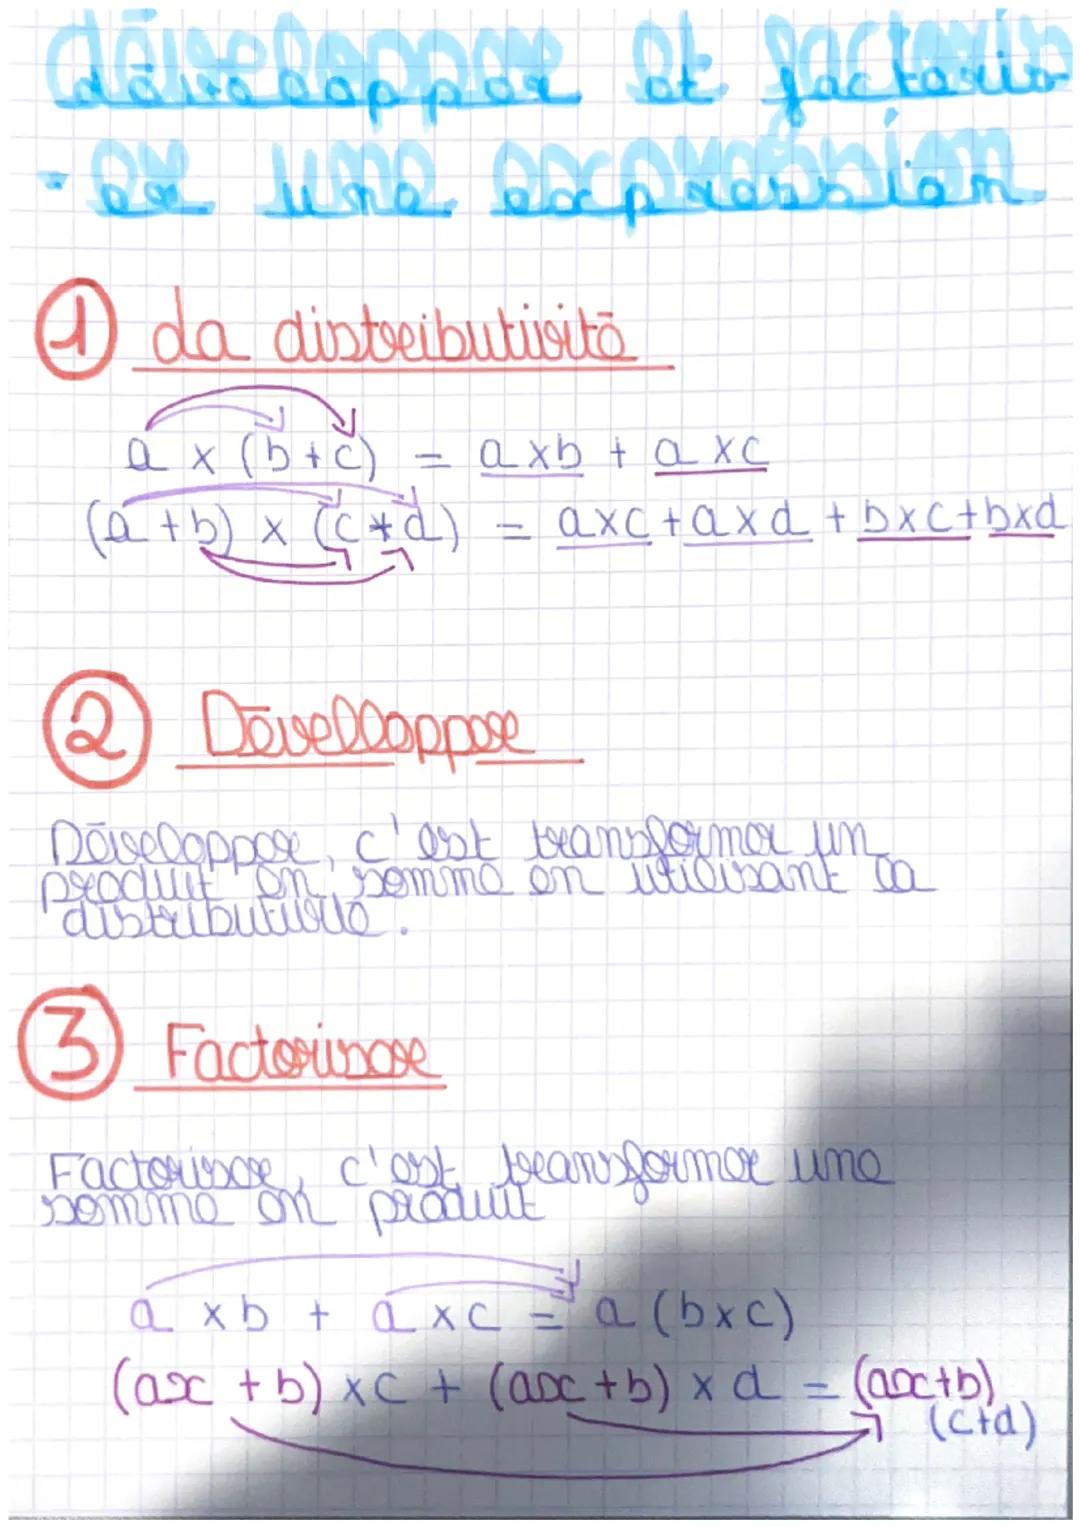 développer et factoris
-er une expression
1 La distributivité
a x (b+c) = axb + axc
(a+b) x (c+d) = axc+axd+bxc+bxd
2 Dévellopper
Développer, c'est transformer un
produit en somme en utilisant la
distributivité.
3 Factoriser
Factoriser, c'est transformer une
somme en produit
a xb + axc = a (bxc)
(ax+b) xc + (ax+b) x d = (ax+b)
(c+d)